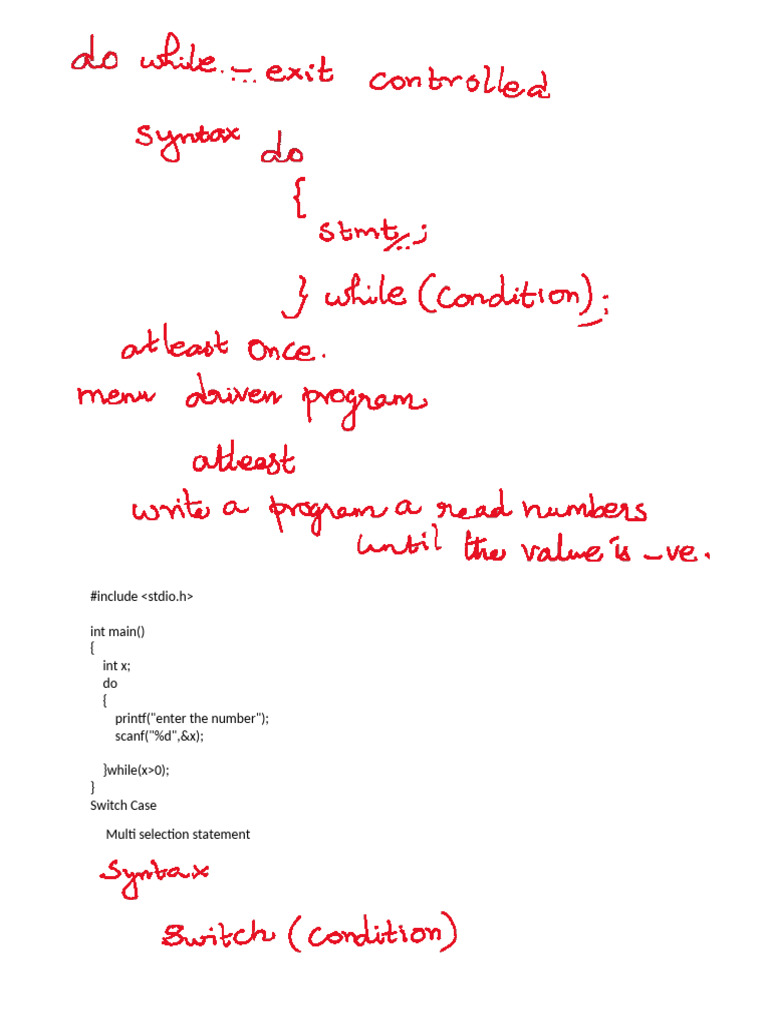 do while :- exit controlled
syntax do
{
stmt;
} while (condition);
atleast once.
menu driven program
atleast
write a program a read numbers
until the value is -ve.
#include <stdio.h>
int main()
{
int x;
do
{
printf("enter the number");
scanf("%d",&x);
}while(x>0);
}
Switch Case
Multi selection statement
Syntax
Switch (condition)